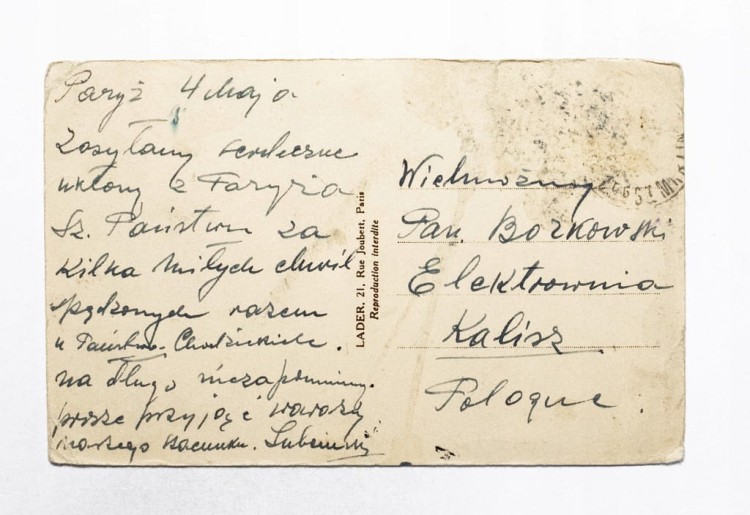 Paryż 4 Maja
Zasyłamy serdeczne
ukłony z Paryża
Sz. Państwu za
Kilka miłych chwil
spędzonych razem
u Państwa Chodzickich.
na długo niezapomnimy.
proszę przyjąć wyrazy
naszego szacunku.
LADER, 21, Rue Joubert, Paris
Reproduction interdite
Wielmożny
Pan. Borkowski
Elektrownia
Kalisz
Pologne.